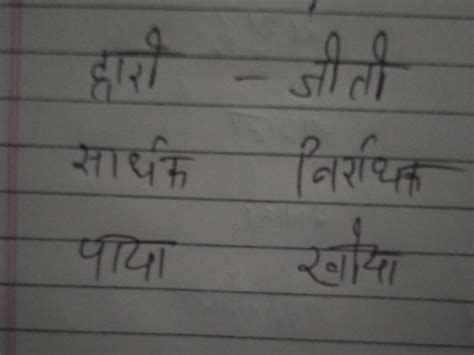 हारी - जीती
सार्थक निर्राथक
पाया खोया